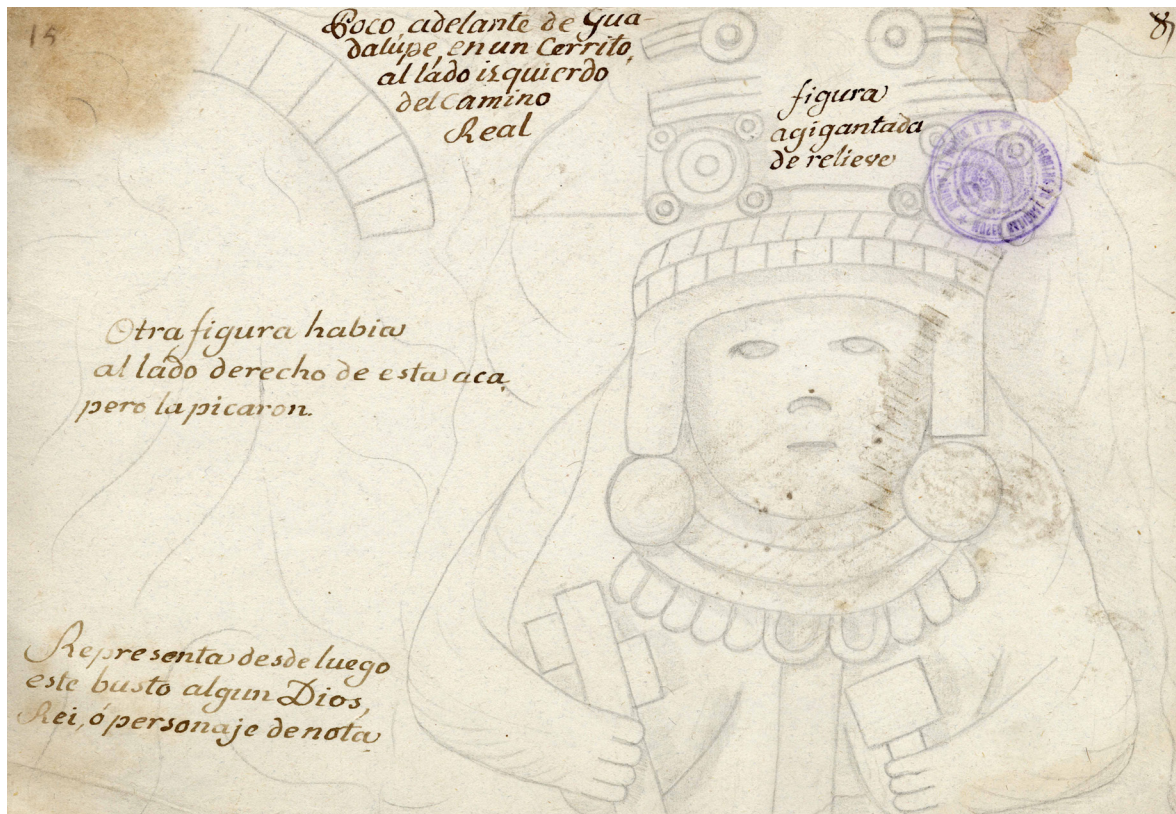 15
8
Poco adelante de Gua-
dalupe, en un Cerrito,
al lado isquierdo
del camino
Real
figura
agigantada
de relieve
Otra figura habia
al lado derecho de esta aca,
pero la picaron.
Representa desde luego
este busto algun Dios,
Rei, ó personaje de nota